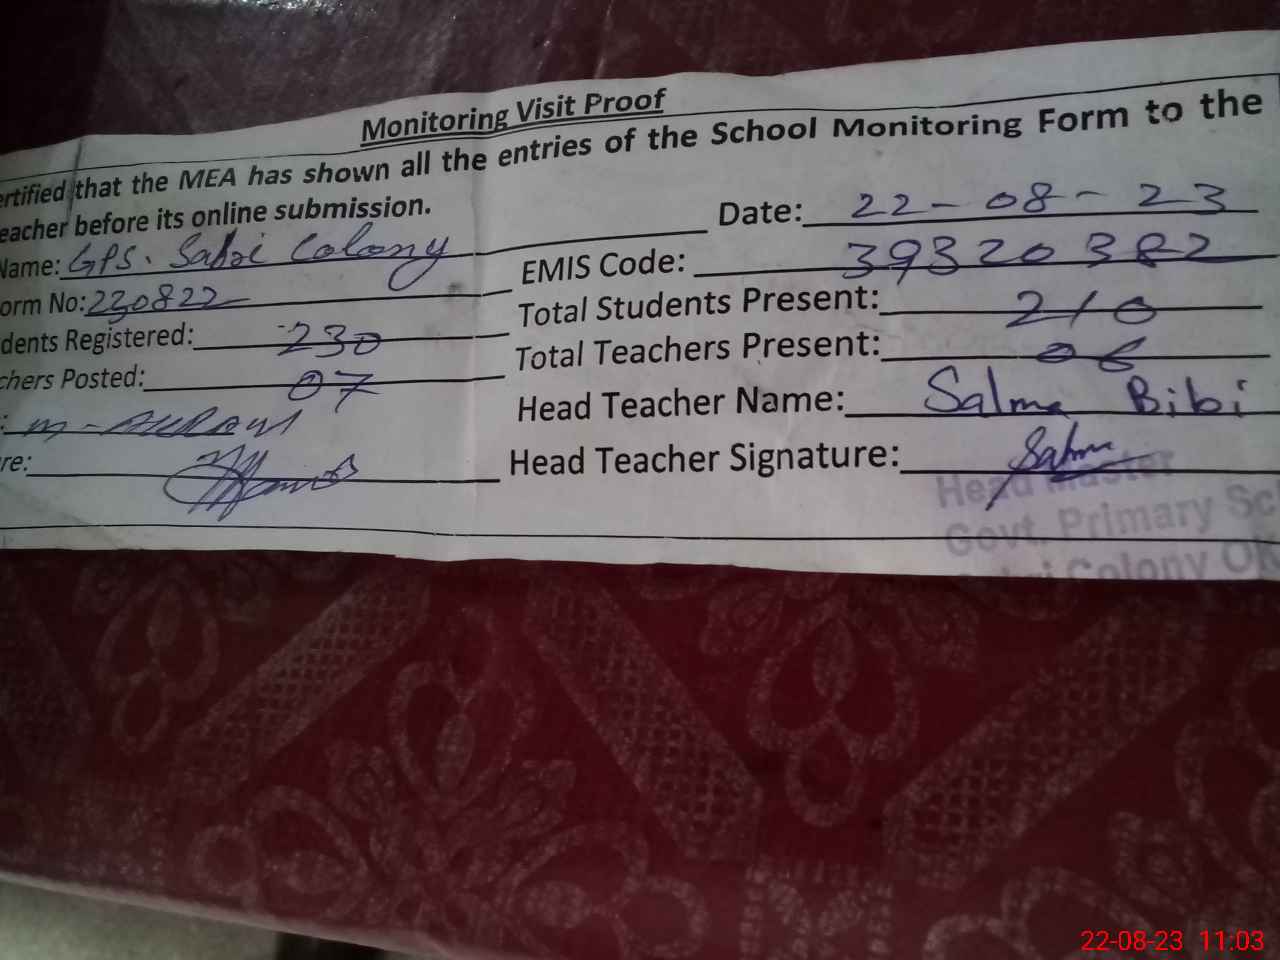 Monitoring Visit Proof
ertified that the MEA has shown all the entries of the School Monitoring Form to the
eacher before its online submission.
Date: 22-08-23
Name: GPS. Sabri Colony
EMIS Code: 39320382
orm No: 230822
Total Students Present: 210
dents Registered: 230
Total Teachers Present: 06
chers Posted: 07
Head Teacher Name: Salma Bibi
: M-
re:
Head Teacher Signature: Salma
Head Master
Govt. Primary Sc
Colony Ok
22-08-23 11:03